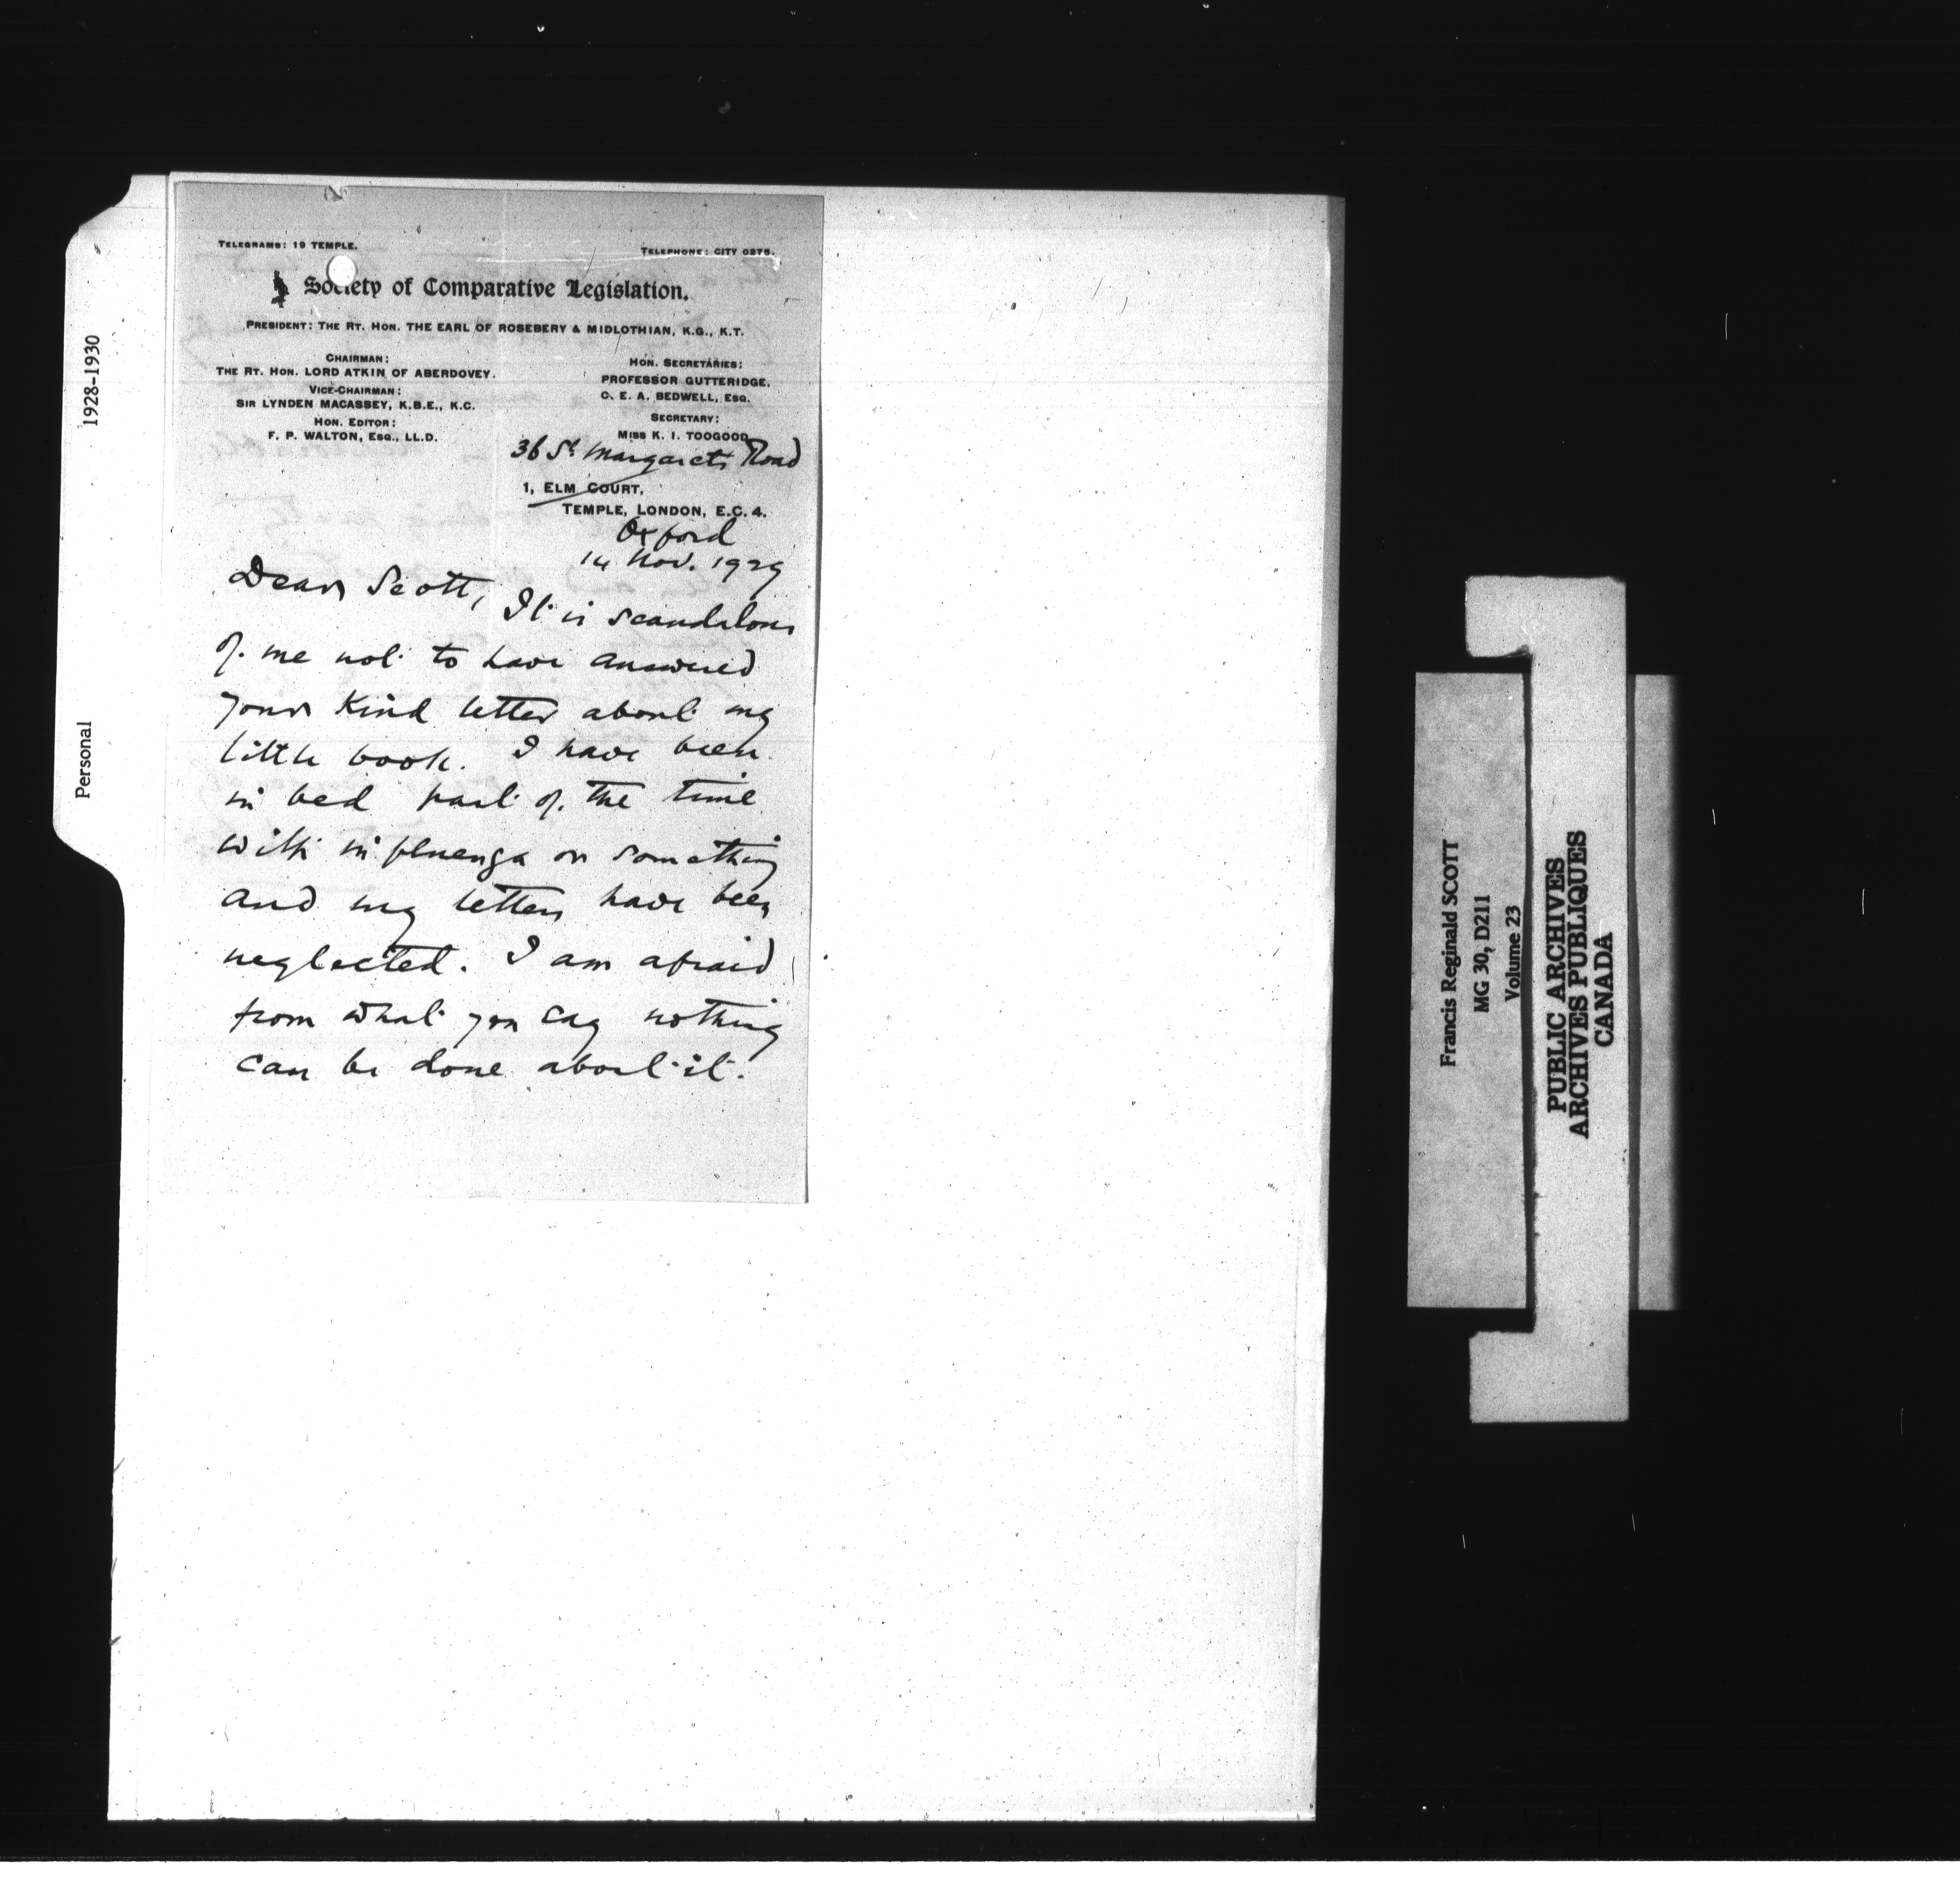 TELEGRAMS: 19 TEMPLE.
TELEPHONE: CITY 0275.
Society of Comparative Legislation.
PRESIDENT: THE RT. HON. THE EARL OF ROSEBERY & MIDLOTHIAN, K.G., K.T.
CHAIRMAN:
THE RT. HON. LORD ATKIN OF ABERDOVEY.
VICE-CHAIRMAN:
SIR LYNDEN MACASSEY, K.B.E., K.C.
HON. EDITOR:
F. P. WALTON, ESQ., LL.D.
HON. SECRETARIES:
PROFESSOR GUTTERIDGE.
C. E. A. BEDWELL, ESQ.
SECRETARY:
MISS K. I. TOOGOOD
36 St Margarets Road
1, ELM COURT,
TEMPLE, LONDON, E.C.4.
Oxford
14 Nov. 1929
Dear Scott,
It is scandalous
of me not to have answered
your kind letter about my
little book. I have been
in bed part of the time
with influenza or something
and my letters have been
neglected. I am afraid
from what you say nothing
can be done about it.
1928-1930
Personal
Francis Reginald SCOTT
MG 30, D211
Volume 23
PUBLIC ARCHIVES
ARCHIVES PUBLIQUES
CANADA